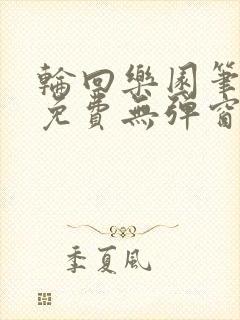 輪回樂園筆
免費無彈窗
季夏風